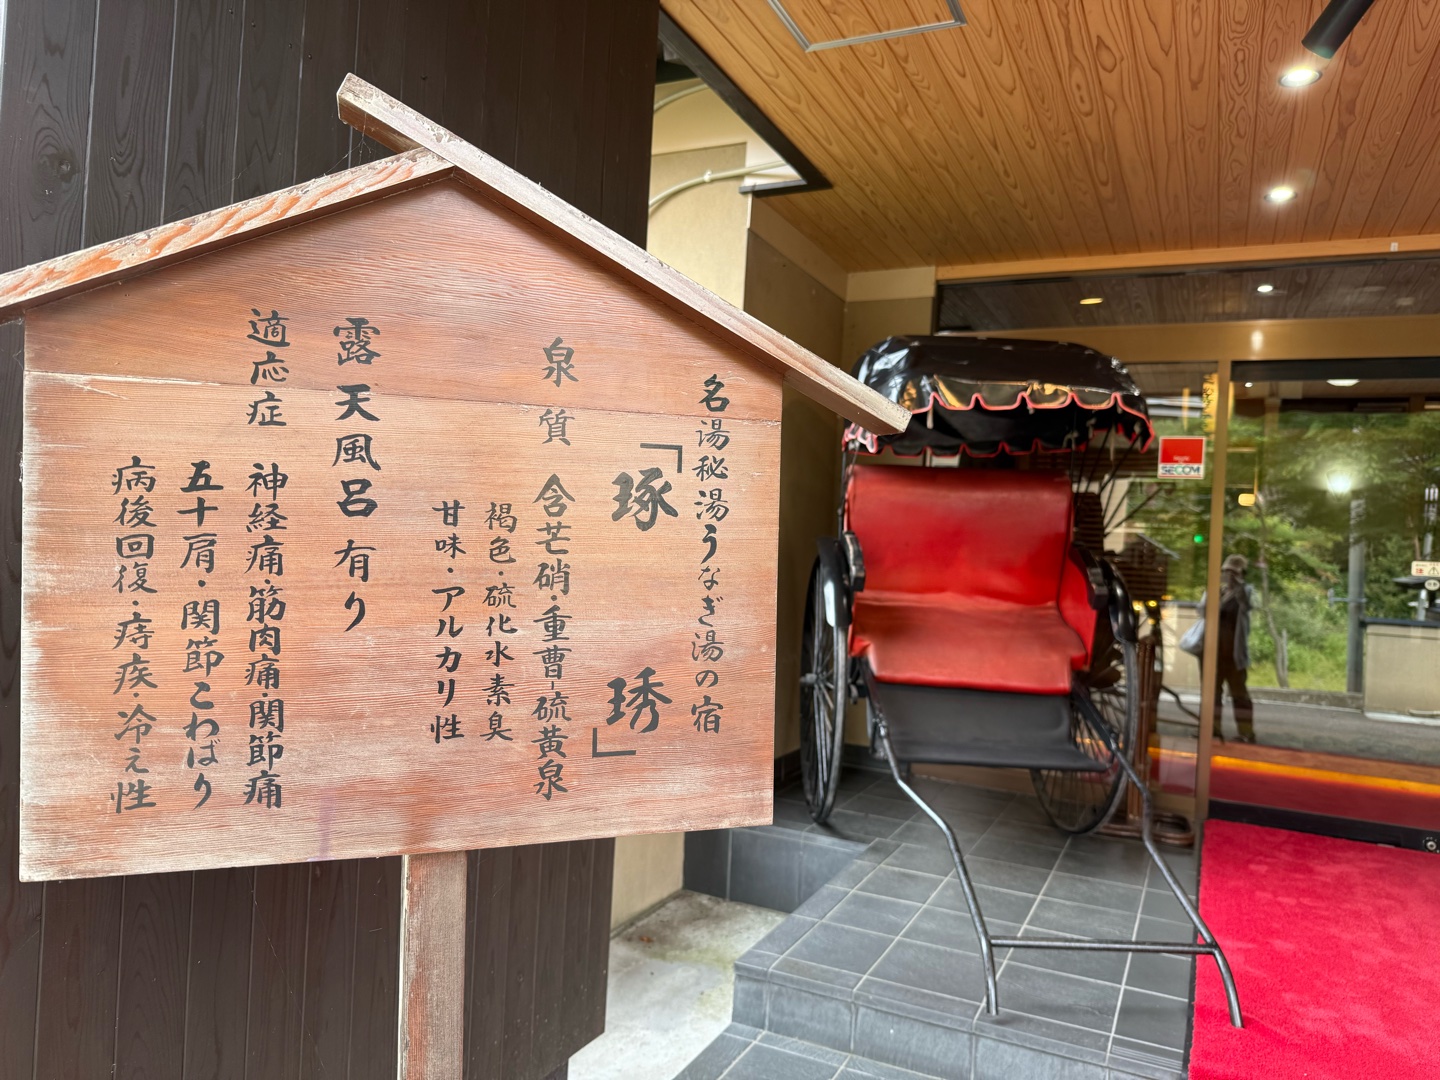 名湯秘湯うなぎ湯の宿
「琢琇」
泉質 含芒硝・重曹-硫黄泉
褐色・硫化水素臭
甘味・アルカリ性
露天風呂有り
適応症 神経痛・筋肉痛・関節痛
五十肩・関節こわばり
病後回復・痔疾・冷え性
SECOM